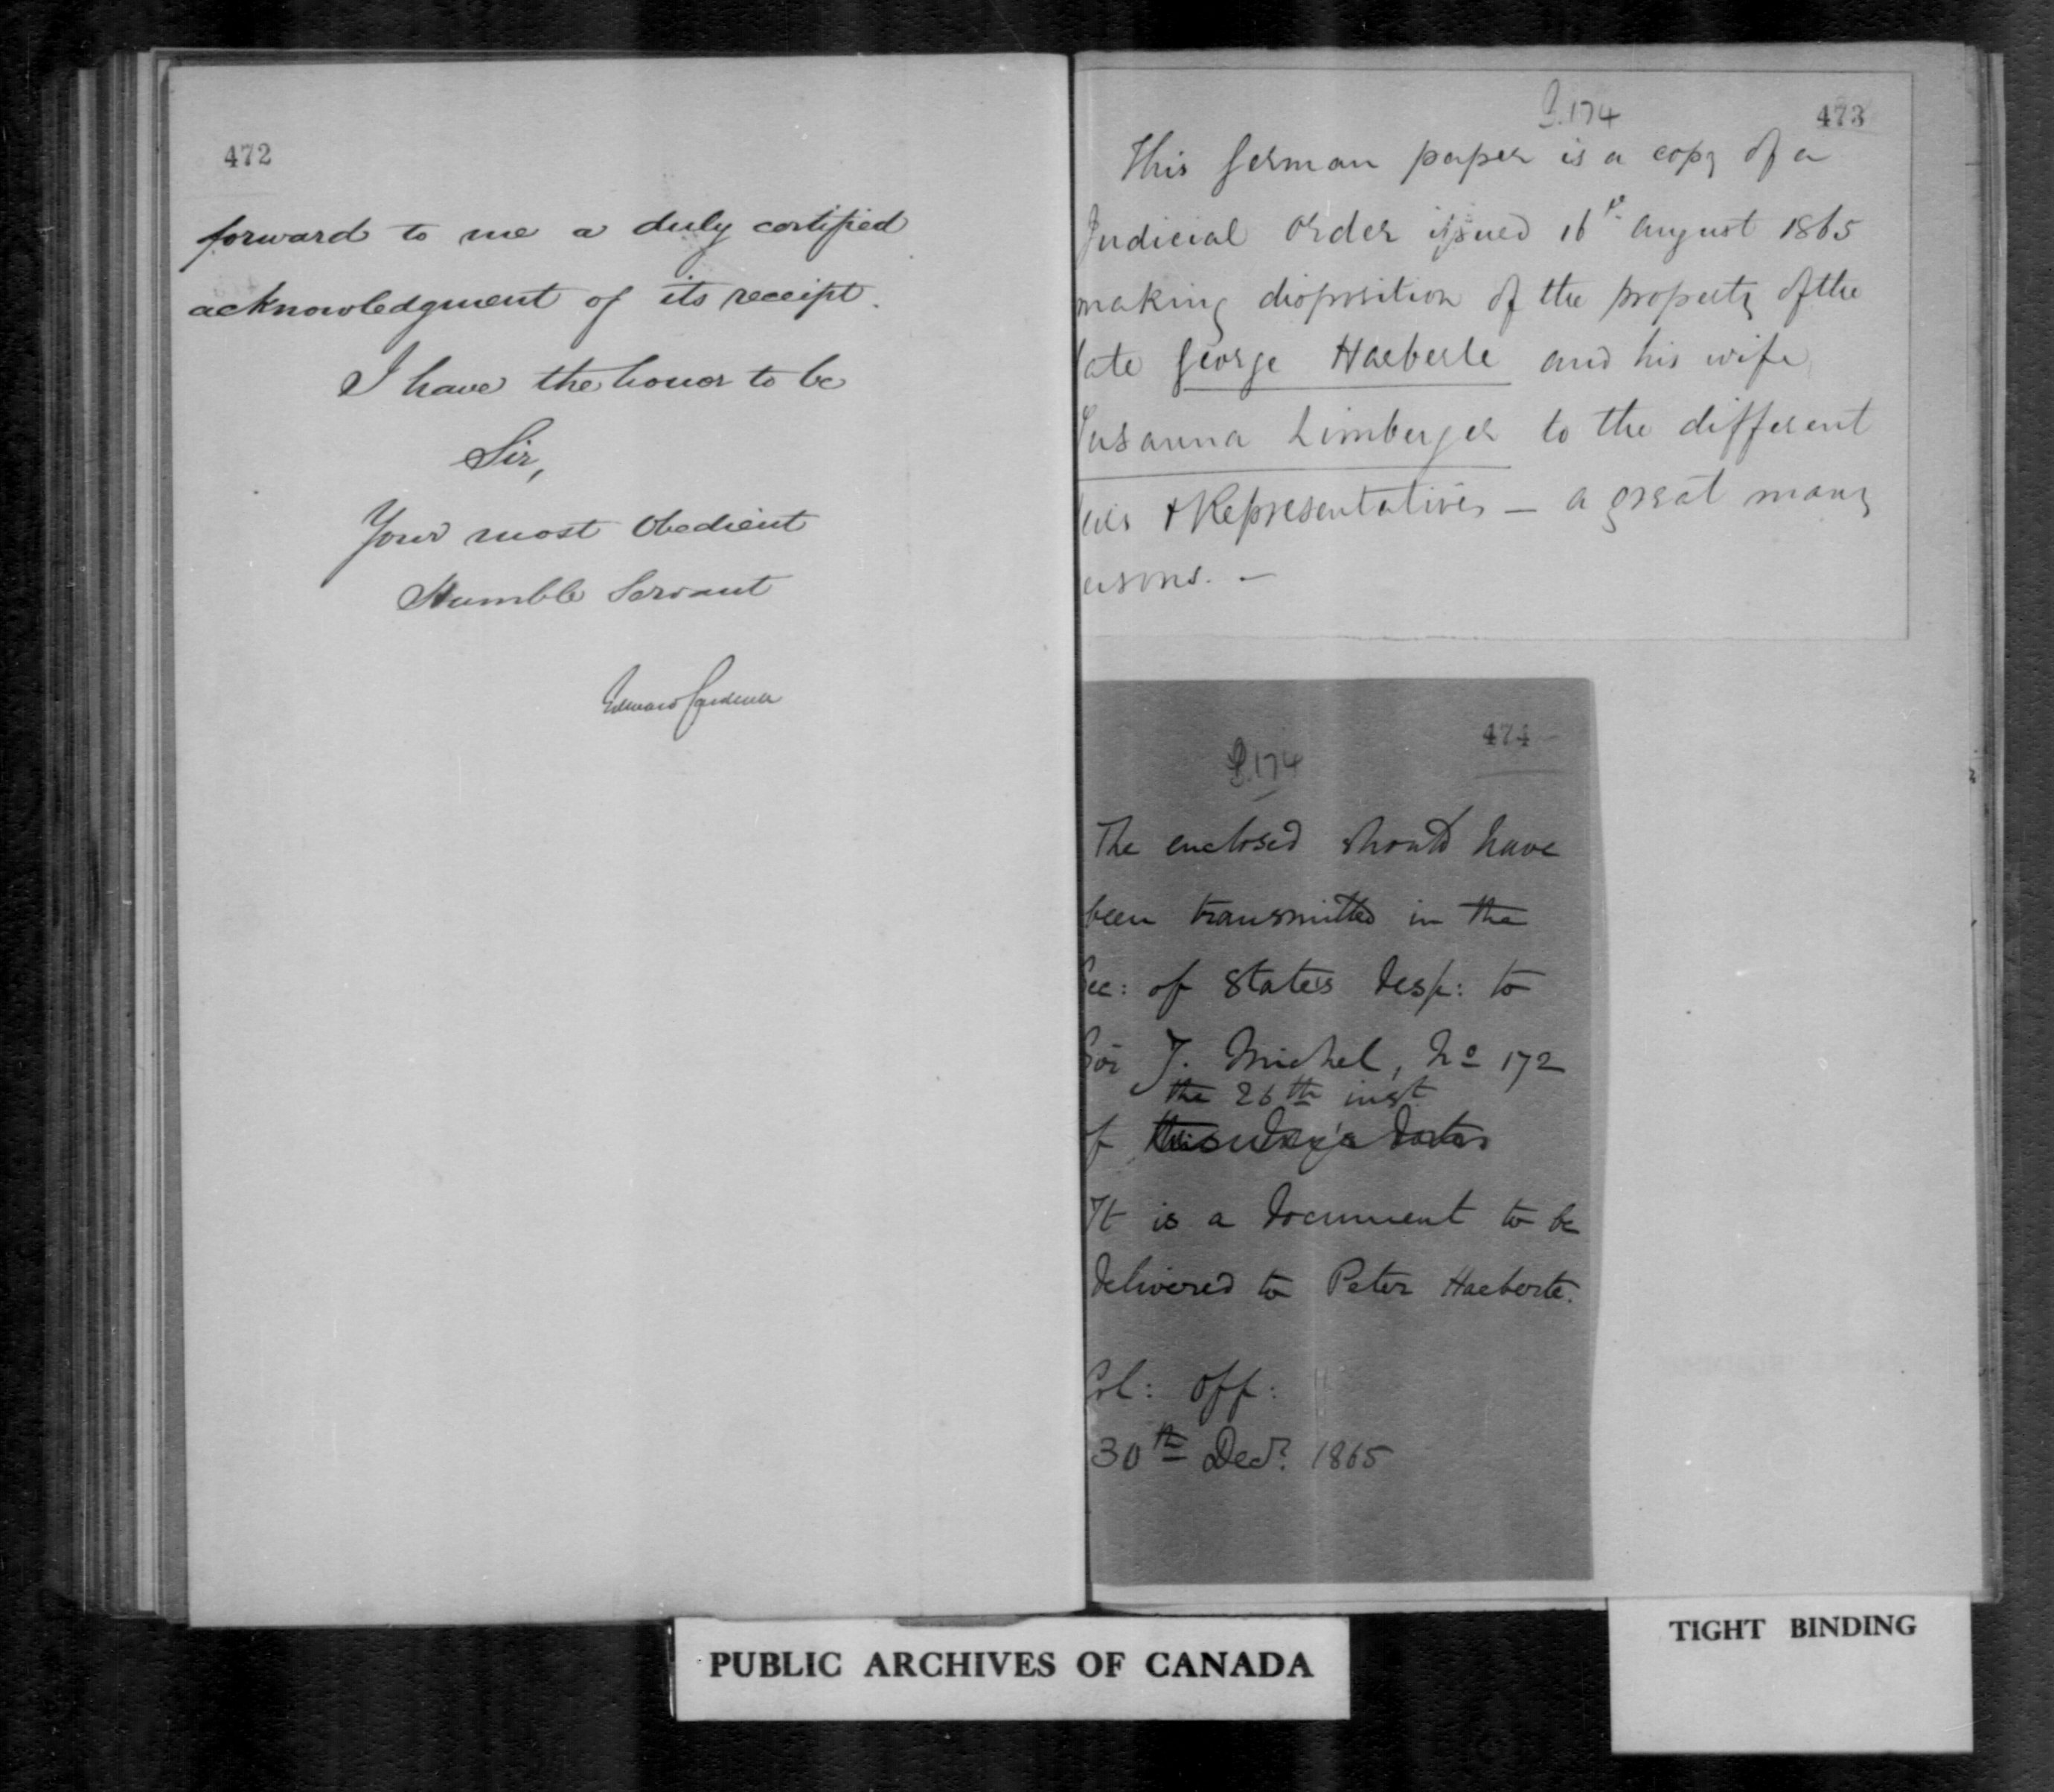 472
forward to me a duly certified
acknowledgment of its receipt.
I have the honor to be
Sir,
Your most Obedient
Humble Servant
Edward
G.174
473
This German paper is a copy of a
Judicial order issued 16th August 1865
making disposition of the property of the
late George Haeberle and his wife
Susanna Limberger to the different
& Representatives – a great many
ersons. –
474
174
The enclosed should have
been transmitted in the
Sec: of State's desp: to
Sir J. Michel, No 172
the 26th inst
of this day's date
It is a document to be
delivered to Peter Haeberle.
Col: Off:
30th Decr. 1865
PUBLIC ARCHIVES OF CANADA
TIGHT BINDING